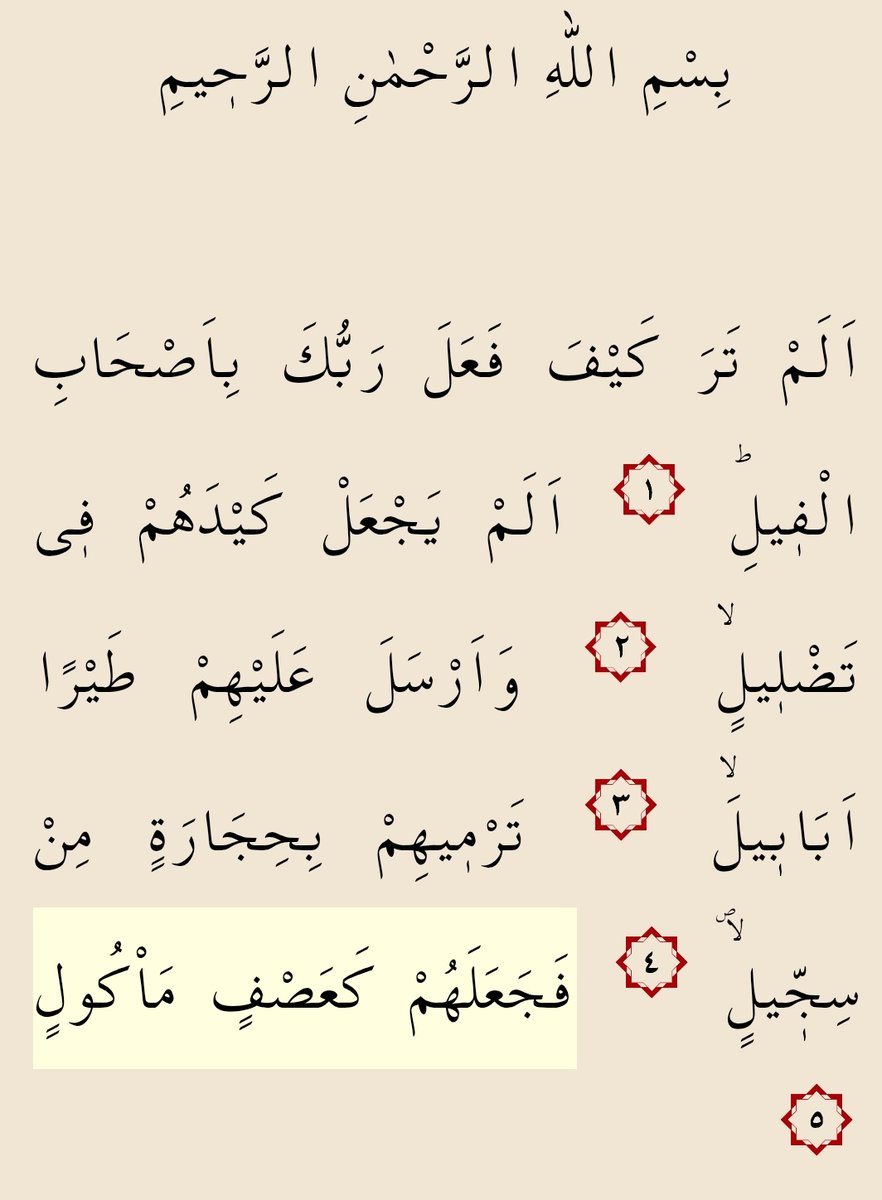 بِسْمِ اللّٰهِ الرَّحْمٰنِ الرَّحٖيمِ
اَلَمْ تَرَ كَيْفَ فَعَلَ رَبُّكَ بِاَصْحَابِ
الْفٖيلِؕ ١ اَلَمْ يَجْعَلْ كَيْدَهُمْ فٖى
تَضْلٖيلٍۙ ٢ وَاَرْسَلَ عَلَيْهِمْ طَيْرًا
اَبَابٖيلَۙ ٣ تَرْمٖيهِمْ بِحِجَارَةٍ مِنْ
سِجّٖيلٍۙࣕ ٤ فَجَعَلَهُمْ كَعَصْفٍ مَاْكُولٍ
٥